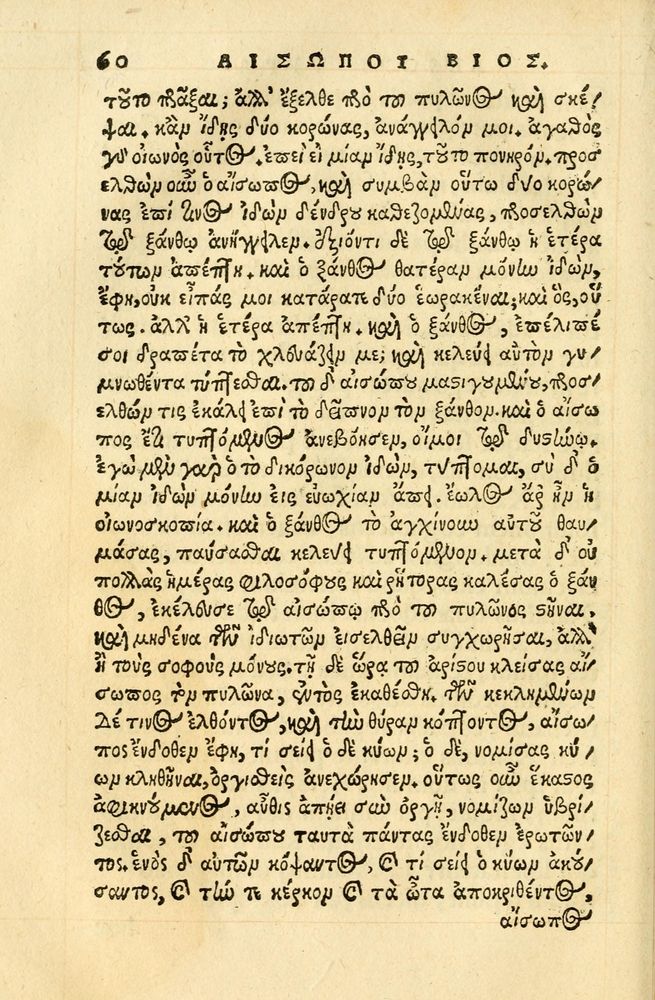 60 ΑΙΣΩΠΟΥ ΒΙΟΣ.
τοῦτο πρᾶξαι; ἀλλ' ἔξελθε πρὸ τοῦ πυλῶνος καὶ σκέ/
ψαι. κἂν ἴδῃς δύο κορώνας, ἀνάγγειλόν μοι. ἀγαθὸς
γὰρ οἰωνὸς οὗτος. ἐπεὶ εἰ μίαν ἴδῃς, τοῦτο πονηρόν. προσ
ελθὼν οὖν ὁ αἴσωπος, καὶ συμβὰν οὕτω δύο κορώ/
νας ἐπί τινος ἰδὼν δένδρου καθεζομένας, προσελθὼν
τῷ ξάνθῳ ἀνήγγειλεν. ἐξιόντι δὲ τῷ ξάνθῳ ἡ ἑτέρα
τούτων ἀπέπτη. καὶ ὁ ξάνθος θατέραν μόνην ἰδὼν,
ἔφη, οὐκ εἶπάς μοι κατάρατε δύο ἑωρακέναι; καὶ ὃς, οὕ
τως. ἀλλ' ἡ ἑτέρα ἀπέπτη. καὶ ὁ ξάνθος, ἐπέλιπέ
σοι δραπέτα τὸ χλευάζειν με; καὶ κελεύει αὐτὸν γυ/
μνωθέντα τύπτεσθαι. τοῦ δ' αἰσώπου μαστιγουμένου, προσ/
ελθών τις ἐκάλει ἐπὶ τὸ δεῖπνον τὸν ξάνθον. καὶ ὁ αἴσω
πος ἔτι τυπτόμενος ἀνεβόησεν, οἴμοι τῷ δυστήνῳ.
ἐγὼ μὲν γὰρ ὁ τὸ δικόρωνον ἰδὼν, τύπτομαι, σὺ δ' ὁ
μίαν ἰδὼν μόνην εἰς εὐωχίαν ἄπει. ἕωλος ἄρ' ἦν ἡ
οἰωνοσκοπία. καὶ ὁ ξάνθος τὸ ἀγχίνουν αὐτοῦ θαυ/
μάσας, παύσασθαι κελεύει τυπτόμενον. μετὰ δ' οὐ
πολλὰς ἡμέρας φιλοσόφους καὶ ῥήτορας καλέσας ὁ ξάν
θος, ἐκέλευσε τῷ αἰσώπῳ πρὸ τοῦ πυλῶνος στῆναι,
καὶ μηδένα τῶν ἰδιωτῶν εἰσελθεῖν συγχωρῆσαι, ἀλλ'
ἢ τοὺς σοφοὺς μόνους. τῇ δὲ ὥρᾳ τοῦ ἀρίστου κλείσας αἴ/
σωπος τὸν πυλῶνα, ἐντὸς ἐκαθέσθη. τῶν κεκλημένων
Δέ τινος ἐλθόντος, καὶ τὴν θύραν κόπτοντος, αἴσω/
πος ἔνδοθεν ἔφη, τί σείει ὁ δὲ κύων; ὁ δὲ, νομίσας κύ/
ων κληθῆναι, ὀργισθεὶς ἀνεχώρησεν. οὕτως οὖν ἕκαστος
ἀφικνούμενος, αὖθις ἀπῄει σὺν ὀργῇ, νομίζων ὑβρί/
ζεσθαι, τοῦ αἰσώπου ταυτὰ πάντας ἔνδοθεν ἐρωτῶν/
τος. ἑνὸς δ' αὐτῶν κόψαντος, καὶ τί σείει ὁ κύων ἀκού/
σαντος, καὶ τήν τε κέρκον καὶ τὰ ὦτα ἀποκριθέντος,
αἴσωπος